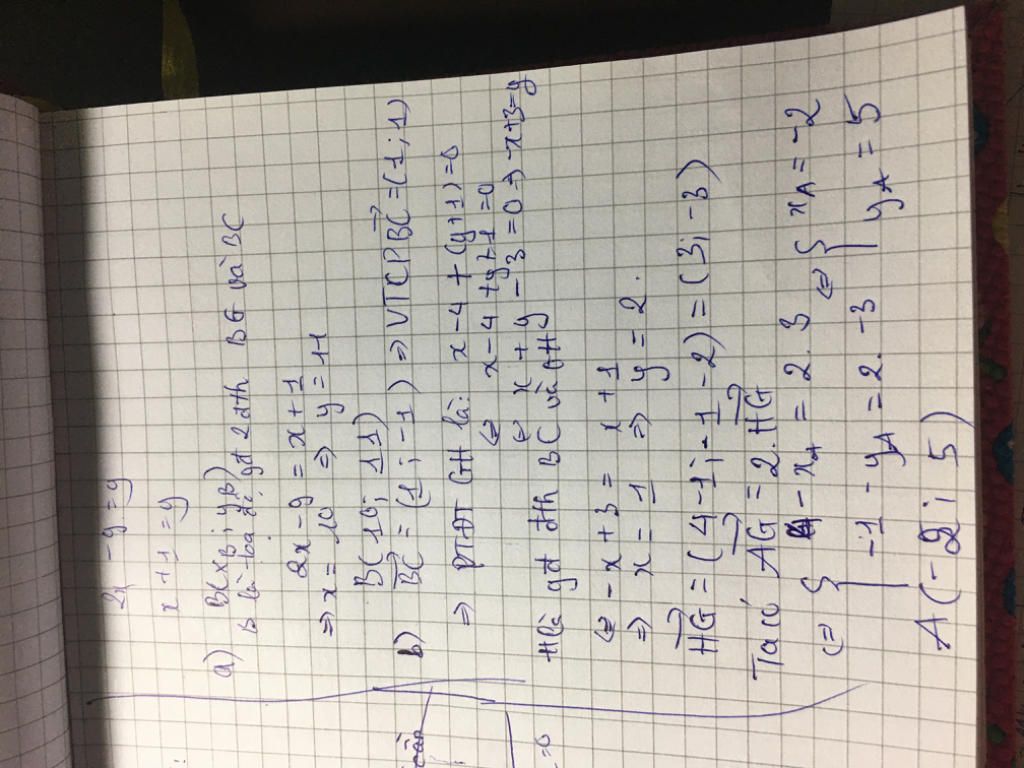 2x - 9 = y
x + 1 = y
a) B(x_B; y_B)
B là toạ độ gđ 2 đth BG và BC
2x - 9 = x + 1
=> x = 10 => y = 11
B(10; 11)
b) \vec{BC} = (1; -1) => VTCP \vec{BC} = (1; 1)
=> PTĐT GH là: x - 4 + (y + 1) = 0
<=> x - 4 + y + 1 = 0
<=> x + y - 3 = 0 => -x + 3 = y
H là gđ đth BC và GH
<=> -x + 3 = x + 1
=> x = 1 => y = 2.
\vec{HG} = (4 - 1; -1 - 2) = (3; -3)
Ta có \vec{AG} = 2.\vec{HG}
<=> { 4 - x_A = 2. 3 <=> { x_A = -2
-1 - y_A = 2. -3 y_A = 5
A(-2; 5)
= 0